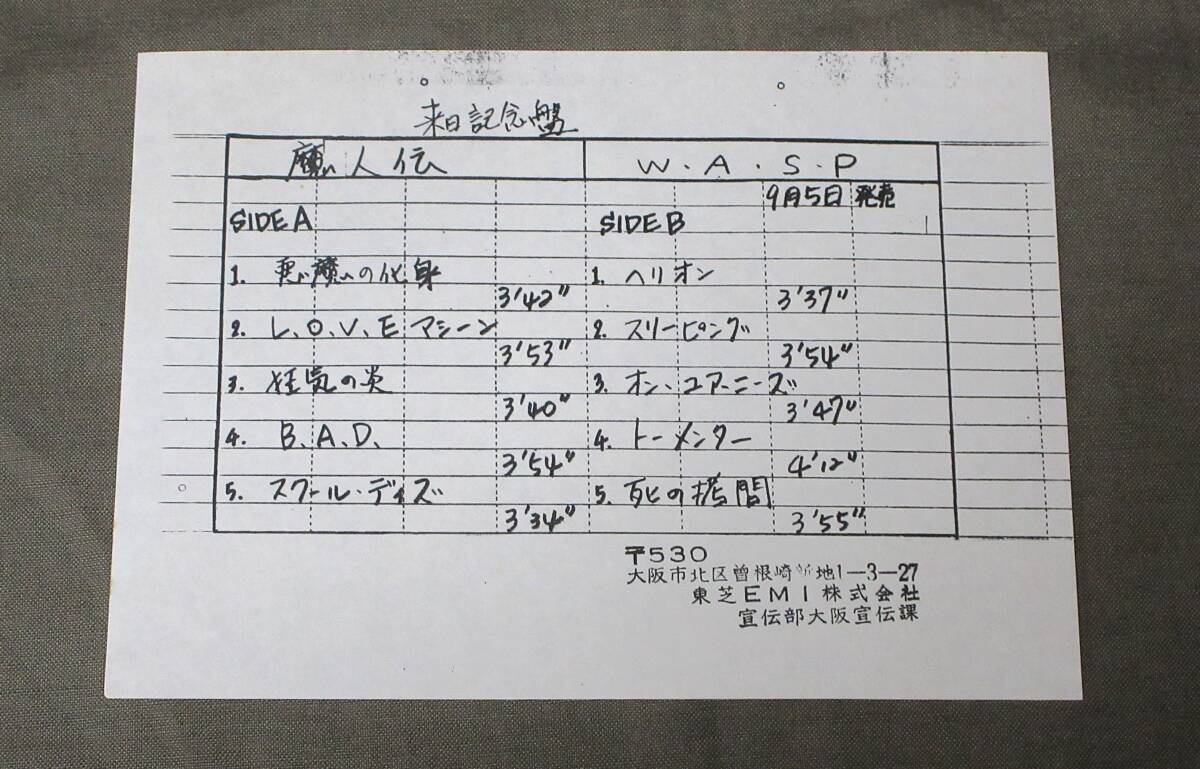 来日記念盤
魔人伝
W・A・S・P
9月5日 発売
SIDE A
1. 悪魔の化身 3'42"
2. L、O、V、E マシーン 3'53"
3. 狂気の炎 3'40"
4. B、A、D、 3'54"
5. スクール・ディズ 3'34"
SIDE B
1. ヘリオン 3'37"
2. スリーピング 3'54"
3. オン・ユア・ニーズ 3'47"
4. トーメンター 4'12"
5. 死の拷問 3'55"
〒530
大阪市北区曽根崎新地1―3―27
東芝EMI株式会社
宣伝部大阪宣伝課